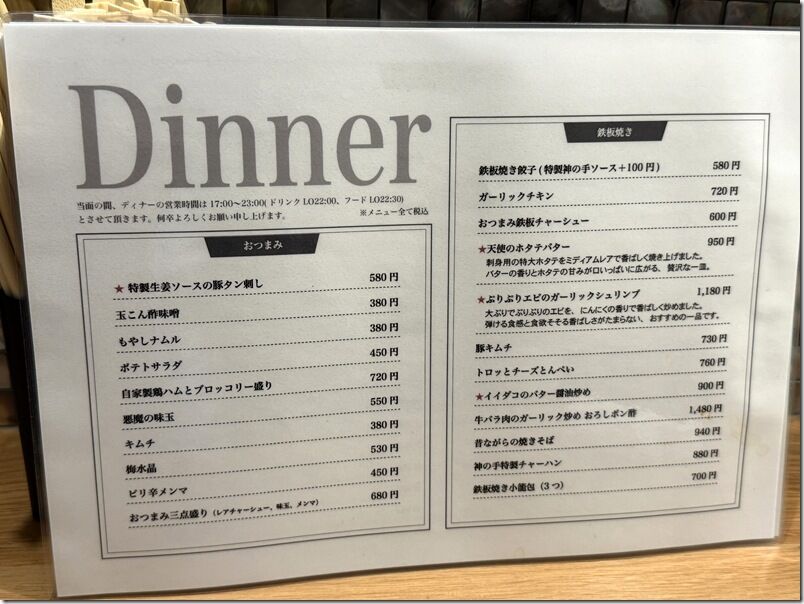 Dinner
当面の間、ディナーの営業時間は 17:00〜23:00( ドリンク LO22:00、フード LO22:30)
とさせて頂きます。何卒よろしくお願い申し上げます。
※メニュー全て税込
おつまみ
★ 特製生姜ソースの豚タン刺し 580 円
玉こん酢味噌 380 円
もやしナムル 380 円
ポテトサラダ 450 円
自家製鶏ハムとブロッコリー盛り 720 円
悪魔の味玉 550 円
キムチ 380 円
梅水晶 530 円
ピリ辛メンマ 450 円
おつまみ三点盛り（レアチャーシュー、味玉、メンマ） 680 円
鉄板焼き
鉄板焼き餃子 ( 特製神の手ソース＋100 円 ) 580 円
ガーリックチキン 720 円
おつまみ鉄板チャーシュー 600 円
★天使のホタテバター 950 円
刺身用の特大ホタテをミディアムレアで香ばしく焼き上げました。
バターの香りとホタテの甘みが口いっぱいに広がる、贅沢な一皿。
★ぷりぷりエビのガーリックシュリンプ 1,180 円
大ぶりでぷりぷりのエビを、にんにくの香りで香ばしく炒めました。
弾ける食感と食欲そそる香ばしさがたまらない、おすすめの一品です。
豚キムチ 730 円
トロッとチーズとんぺい 760 円
★イイダコのバター醤油炒め 900 円
牛バラ肉のガーリック炒め おろしポン酢 1,480 円
昔ながらの焼きそば 940 円
神の手特製チャーハン 880 円
鉄板焼き小籠包（3 つ） 700 円